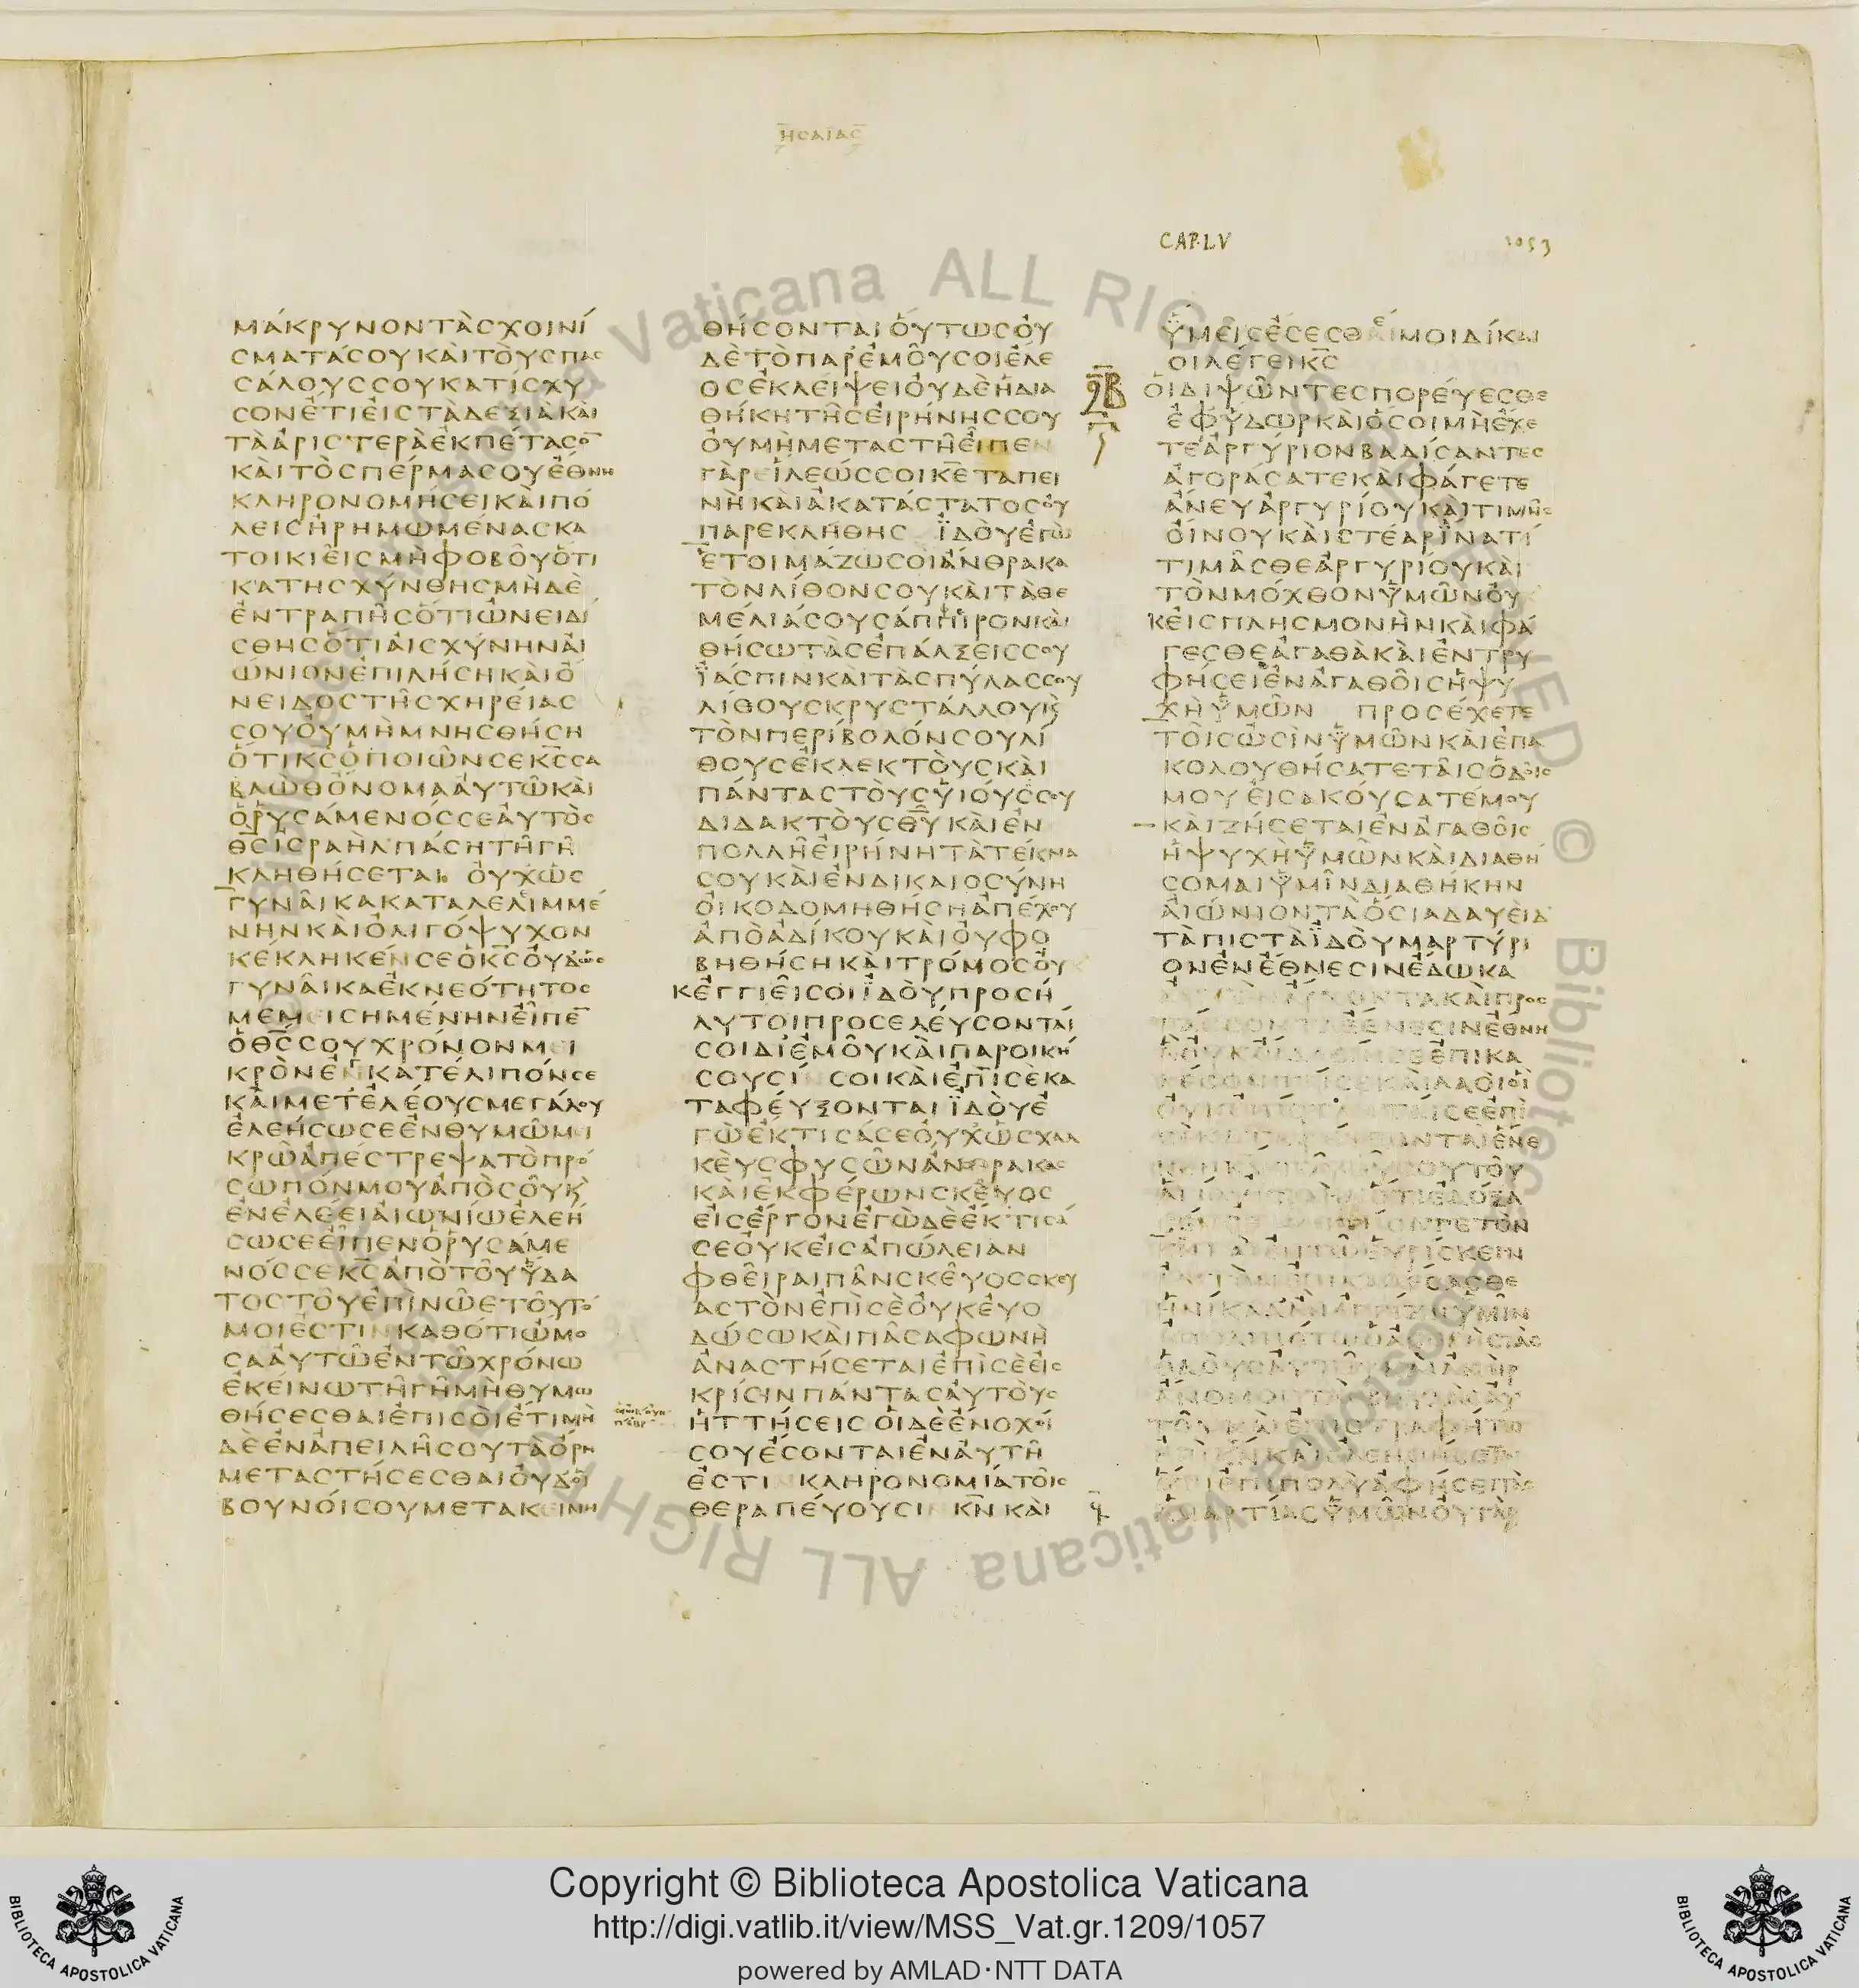 ΗCΑΙΑC
CAP.LV
1053
ΜΑΚΡΥΝΟΝΤΑCΧΟΙΝΙ
CΜΑΤΑCΟΥΚΑΙΤΟΥCΠΑC
CΑΛΟΥCCΟΥΚΑΤΙCΧΥ
CΟΝΕΤΙΕΙCΤΑΔΕΞΙΑΚΑΙ
ΤΑΑΡΙCΤΕΡΑΕΚΠΕΤΑCΟ̅
ΚΑΙΤΟCΠΕΡΜΑCΟΥΕΘΝΗ
ΚΛΗΡΟΝΟΜΗCΕΙΚΑΙΠΟ
ΛΕΙCΗΡΗΜΩΜΕΝΑCΚΑ
ΤΟΙΚΙΕΙCΜΗΦΟΒΟΥΟΤΙ
ΚΑΤΗCΧΥΝΘΗCΜΗΔΕ
ΕΝΤΡΑΠΗCΟΤΙΩΝΕΙΔΙ
CΘΗCΟΤΙΑΙCΧΥΝΗΝΑΙ
ΩΝΙΟΝΕΠΙΛΗCΗΚΑΙΟ
ΝΕΙΔΟCΤΗCΧΗΡΕΙΑC
CΟΥΟΥΜΗΜΝΗCΘΗCΗ
ΟΤΙΚ̅C̅ΟΠΟΙΩΝCΕΚ̅C̅CΑ
ΒΑΩΘΟΝΟΜΑΑΥΤΩΚΑΙ
ΟΡΥCΑΜΕΝΟCCΕΑΥΤΟC
Θ̅C̅ΙCΡΑΗΛΠΑCΗΤΗΓΗ
ΚΛΗΘΗCΕΤΑΙ ΟΥΧΩC
ΓΥΝΑΙΚΑΚΑΤΑΛΕΛΙΜΜΕ
ΝΗΝΚΑΙΟΛΙΓΟΨΥΧΟΝ
ΚΕΚΛΗΚΕΝCΕΟΚ̅C̅ΟΥΔΩC
ΓΥΝΑΙΚΑΕΚΝΕΟΤΗΤΟC
ΜΕΜΕΙCΗΜΕΝΗΝΕΙΠΕ̅
ΟΘ̅C̅CΟΥΧΡΟΝΟΝΜΕΙ
ΚΡΟΝΕΝΚΑΤΕΛΙΠΟΝCΕ
ΚΑΙΜΕΤΕΛΕΟΥCΜΕΓΑΛΟΥ
ΕΛΕΗCΩCΕΕΝΘΥΜΩΜΕΙ
ΚΡΩΑΠΕCΤΡΕΨΑΤΟΠΡΟ
CΩΠΟΝΜΟΥΑΠΟCΟΥΚ
ΕΝΕΛΕΕΙΑΙΩΝΙΩΕΛΕΗ
CΩCΕΕΙΠΕΝΟΡΥCΑΜΕ
ΝΟCCΕΚ̅C̅ΑΠΟΤΟΥΥΔΑ
ΤΟCΤΟΥΕΠΙΝΩΕΤΟΥΤΟ
ΜΟΙΕCΤΙΝΚΑΘΟΤΙΩΜΟ
CΑΑΥΤΩΕΝΤΩΧΡΟΝΩ
ΕΚΕΙΝΩΤΗΓΗΜΗΘΥΜΩ
ΘΗCΕCΘΑΙΕΠΙCΟΙΕΤΙΜΗ
ΔΕΕΝΑΠΕΙΛΗCΟΥΤΑΟΡΗ
ΜΕΤΑCΤΗCΕCΘΑΙΟΥΔΟΙ
ΒΟΥΝΟΙCΟΥΜΕΤΑΚΕΙΝΗ
ΘΗCΟΝΤΑΙΟΥΤΩCΟΥ
ΔΕΤΟΠΑΡΕΜΟΥCΟΙΕΛΕ
ΟCΕΚΛΕΙΨΕΙΟΥΔΕΗΔΙΑ
ΘΗΚΗΤΗCΕΙΡΗΝΗCCΟΥ
ΟΥΜΗΜΕΤΑCΤΗΕΙΠΕΝ
ΓΑΡΕΙΛΕΩCCΟΙΚ̅Ε̅ΤΑΠΕΙ
ΝΗΚΑΙΑΚΑΤΑCΤΑΤΟCΟΥ
ΠΑΡΕΚΛΗΘΗC ΙΔΟΥΕΓΩ
ΕΤΟΙΜΑΖΩCΟΙΑΝΘΡΑΚΑ
ΤΟΝΛΙΘΟΝCΟΥΚΑΙΤΑΘΕ
ΜΕΛΙΑCΟΥCΑΠΠΙΡΟΝΚΑΙ
ΘΗCΩΤΑCΕΠΑΛΞΕΙCCΟΥ
ΙΑCΠΙΝΚΑΙΤΑCΠΥΛΑCCΟΥ
ΛΙΘΟΥCΚΡΥCΤΑΛΛΟΥΚ
ΤΟΝΠΕΡΙΒΟΛΟΝCΟΥΛΙ
ΘΟΥCΕΚΛΕΚΤΟΥCΚΑΙ
ΠΑΝΤΑCΤΟΥCΥΙΟΥCCΟΥ
ΔΙΔΑΚΤΟΥCΘ̅Υ̅ΚΑΙΕΝ
ΠΟΛΛΗΕΙΡΗΝΗΤΑΤΕΚΝΑ
CΟΥΚΑΙΕΝΔΙΚΑΙΟCΥΝΗ
ΟΙΚΟΔΟΜΗΘΗCΗΑΠΕΧΟΥ
ΑΠΟΑΔΙΚΟΥΚΑΙΟΥΦΟ
ΒΗΘΗCΗΚΑΙΤΡΟΜΟCΟΥ
ΚΕΓΓΙΕΙCΟΙΙΔΟΥΠΡΟCΗ
ΛΥΤΟΙΠΡΟCΕΛΕΥCΟΝΤΑΙ
CΟΙΔΙΕΜΟΥΚΑΙΠΑΡΟΙΚΗ
CΟΥCΙΝCΟΙΚΑΙΕΠΙCΕΚΑ
ΤΑΦΕΥΞΟΝΤΑΙΙΔΟΥΕ
ΓΩΕΚΤΙCΑCΕΟΥΧΩCΧΑΛ
ΚΕΥCΦΥCΩΝΑΝΘΡΑΚΑC
ΚΑΙΕΚΦΕΡΩΝCΚΕΥΟC
ΕΙCΕΡΓΟΝΕΓΩΔΕΕΚΤΙCΑ
CΕΟΥΚΕΙCΑΠΩΛΕΙΑΝ
ΦΘΕΙΡΑΙΠΑΝCΚΕΥΟCCΚΕΥ
ΑCΤΟΝΕΠΙCΕΟΥΚΕΥΟ
ΔΩCΩΚΑΙΠΑCΑΦΩΝΗ
ΑΝΑCΤΗCΕΤΑΙΕΠΙCΕΕΙC
ΚΡΙCΙΝΠΑΝΤΑCΑΥΤΟΥC
ΗΤΤΗCΕΙCΟΙΔΕΕΝΟΧΟΙ
CΟΥΕCΟΝΤΑΙΕΝΑΥΤΗ
ΕCΤΙΝΚΛΗΡΟΝΟΜΙΑΤΟΙC
ΘΕΡΑΠΕΥΟΥCΙΝΚ̅Ν̅ΚΑΙ
ΥΜΕΙCΕCΕCΘΑΙΜΟΙΔΙΚΑΙ
ΟΙΛΕΓΕΙΚ̅C̅
ΟΙΔΙΨΩΝΤΕCΠΟΡΕΥΕCΘΕ
ΕΦΥΔΩΡΚΑΙΟCΟΙΜΗΕΧΕ
ΤΕΑΡΓΥΡΙΟΝΒΑΔΙCΑΝΤΕC
ΑΓΟΡΑCΑΤΕΚΑΙΦΑΓΕΤΕ
ΑΝΕΥΑΡΓΥΡΙΟΥΚΑΙΤΙΜΗC
ΟΙΝΟΥΚΑΙCΤΕΑΡΙΝΑΤΙ
ΤΙΜΑCΘΕΑΡΓΥΡΙΟΥΚΑΙ
ΤΟΝΜΟΧΘΟΝΥΜΩΝΟΥ
ΚΕΙCΠΛΗCΜΟΝΗΝΚΑΙΦΑ
ΓΕCΘΕΑΓΑΘΑΚΑΙΕΝΤΡΥ
ΦΗCΕΙΕΝΑΓΑΘΟΙCΗΨΥ
ΧΗΥΜΩΝ ΠΡΟCΕΧΕΤΕ
ΤΟΙCΩCΙΝΥΜΩΝΚΑΙΕΠΑ
ΚΟΛΟΥΘΗCΑΤΕΤΑΙCΟΔΟΙC
ΜΟΥΕΙCΑΚΟΥCΑΤΕΜΟΥ
ΚΑΙΖΗCΕΤΑΙΕΝΑΓΑΘΟΙC
ΗΨΥΧΗΥΜΩΝΚΑΙΔΙΑΘΗ
CΟΜΑΙΥΜΙΝΔΙΑΘΗΚΗΝ
ΑΙΩΝΙΟΝΤΑΟCΙΑΔΑΥΕΙΔ
ΤΑΠΙCΤΑΙΔΟΥΜΑΡΤΥΡΙ
ΟΝΕΝΕΘΝΕCΙΝΕΔΩΚΑ
ΑΡΧΟΝΤΑΚΑΙΠΡΟC
ΕΘΝΕCΙΝΕΘΝΗ
ΕΠΙΚΑ
ΚΑΙΛΑΟΙΟΙ
CΕΕΠΙ
ΟΝΤΑΙΕΝΕ
CΟΥΤΟΥ
ΟΤΙΕΔΟΞΑ
ΤΕΤΟΝ
ΕΥΡΙCΚΕΙΝ
ΗΝΙΚΑΔΑΝΕΓΓΙΖΗΥΜΙΝ
ΕΠΙΠΟΛΥΑΦΗCΕΙΤΑC
ΑΜΑΡΤΙΑCΥΜΩΝΟΥΓΑΡ
Copyright © Biblioteca Apostolica Vaticana
http://digi.vatlib.it/view/MSS_Vat.gr.1209/1057
powered by AMLAD·NTT DATA
BIBLIOTECA APOSTOLICA VATICANA
BIBLIOTECA APOSTOLICA VATICANA